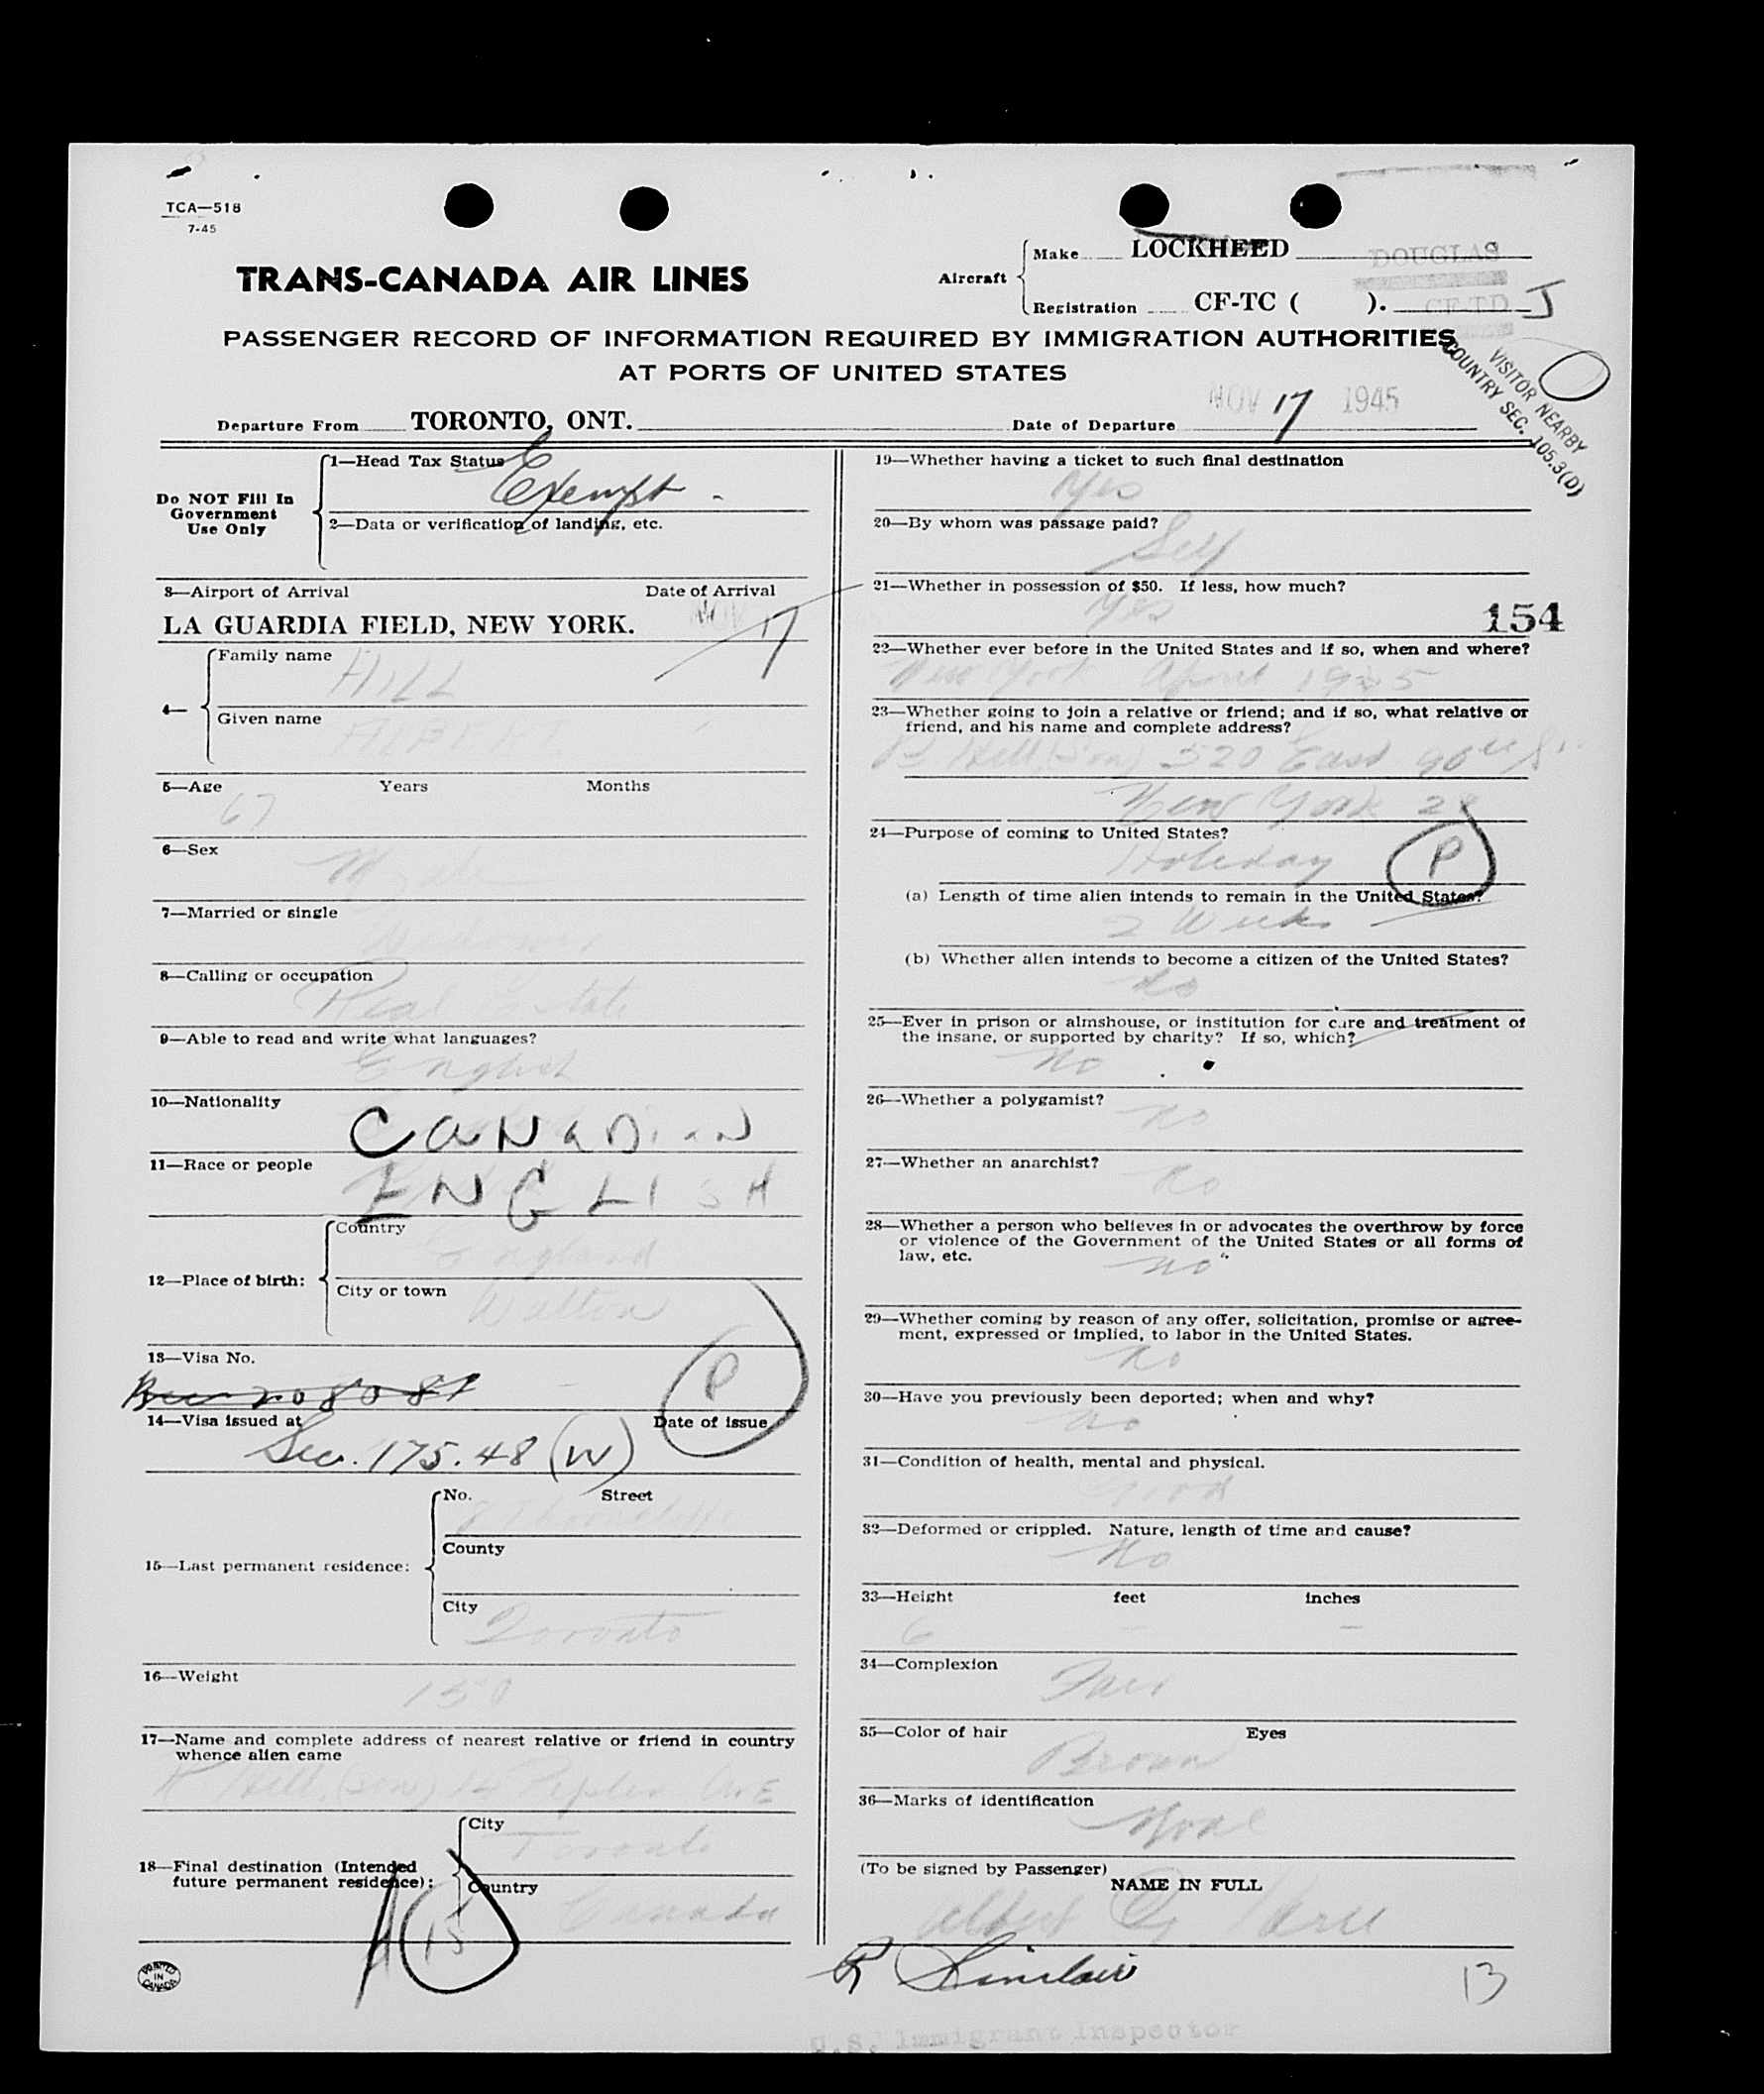 TCA—518
7-45
TRANS-CANADA AIR LINES
Aircraft
Make LOCKHEED DOUGLAS
Registration CF-TC ( ). CF-TD J
PASSENGER RECORD OF INFORMATION REQUIRED BY IMMIGRATION AUTHORITIES
AT PORTS OF UNITED STATES
VISITOR NEARBY
COUNTRY SEC. 105.3(D)
Departure From TORONTO, ONT. Date of Departure NOV 17 1945
Do NOT Fill In
Government
Use Only
1—Head Tax Status
Exempt -
2—Data or verification of landing, etc.
3—Airport of Arrival Date of Arrival
LA GUARDIA FIELD, NEW YORK. NOV 17
4—
Family name
HILL
Given name
ALBERT
5—Age Years Months
67
6—Sex
Male
7—Married or single
Widower
8—Calling or occupation
Real Estate
9—Able to read and write what languages?
English
10—Nationality
CANADIAN
11—Race or people
ENGLISH
12—Place of birth:
Country
England
City or town
Walton
P
13—Visa No.
208089
14—Visa issued at Date of issue
Sec. 175.48 (W)
15—Last permanent residence:
No. Street
County
City
Toronto
16—Weight
150
17—Name and complete address of nearest relative or friend in country
whence alien came
Hill (son)
18—Final destination (Intended
future permanent residence):
City
Toronto
Country
Canada
15
PRINTED
IN
CANADA
19—Whether having a ticket to such final destination
Yes
20—By whom was passage paid?
Self
21—Whether in possession of $50. If less, how much?
Yes
154
22—Whether ever before in the United States and if so, when and where?
New York April
23—Whether going to join a relative or friend; and if so, what relative or
friend, and his name and complete address?
Hill (Son) 520 East 90th St.
New York 28
24—Purpose of coming to United States?
Holiday P
(a) Length of time alien intends to remain in the United States?
2 Weeks
(b) Whether alien intends to become a citizen of the United States?
No
25—Ever in prison or almshouse, or institution for care and treatment of
the insane, or supported by charity? If so, which?
No
26—Whether a polygamist?
No
27—Whether an anarchist?
No
28—Whether a person who believes in or advocates the overthrow by force
or violence of the Government of the United States or all forms of
law, etc.
No
29—Whether coming by reason of any offer, solicitation, promise or agree-
ment, expressed or implied, to labor in the United States.
No
30—Have you previously been deported; when and why?
No
31—Condition of health, mental and physical.
Good
32—Deformed or crippled. Nature, length of time and cause?
No
33—Height feet inches
6 — —
34—Complexion
Fair
35—Color of hair Eyes
Brown
36—Marks of identification
None
(To be signed by Passenger)
NAME IN FULL
Albert G. Hill
R Sinclair
13
U.S. Immigrant Inspector